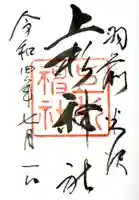 羽前米沢
上杉神社
令和四年七月一日